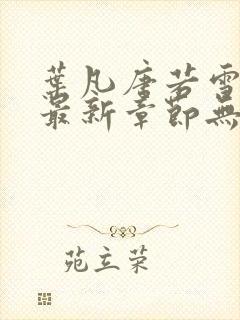 葉凡唐若雪
最新章節無
苑立荣